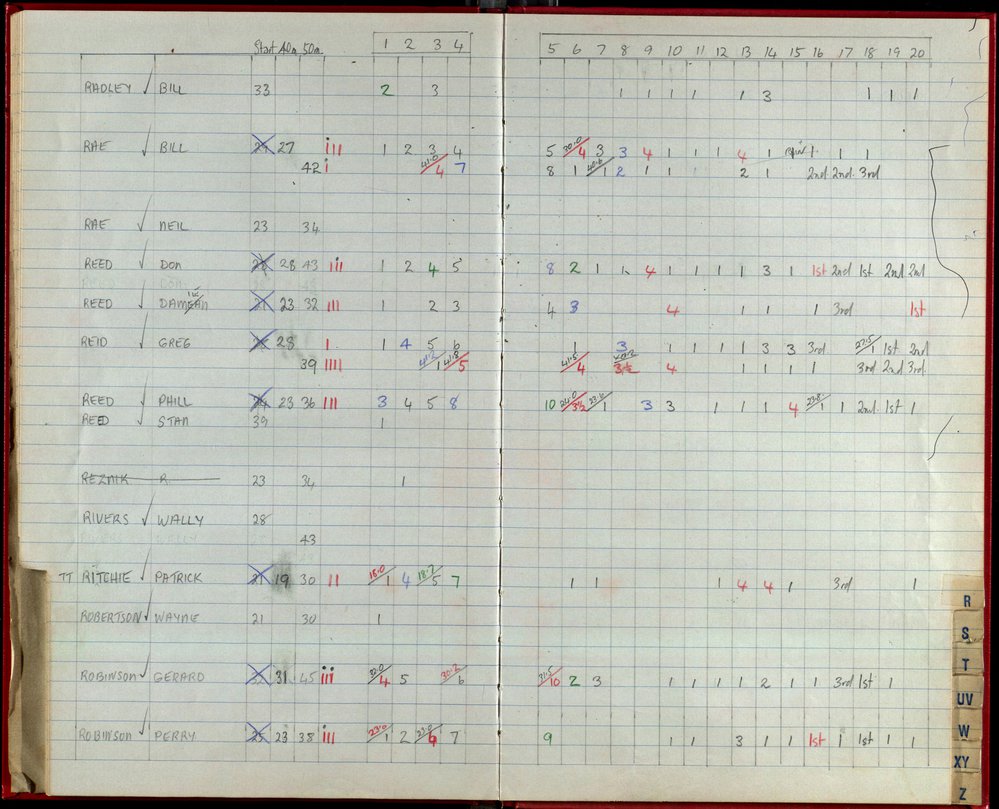 Start 40m 50m 1 2 3 4 5 6 7 8 9 10 11 12 13 14 15 16 17 18 19 20
RADLEY ✓ BILL 33 2 3 1 1 1 1 1 3 1 1 1
RAE ✓ BILL 27 iII 1 2 3 4 5 30.0/4 3 3 4 1 1 1 4 1 1 1 1
42 i 41.0/4 7 8 1 1 2 1 1 1 2 1 2nd 2nd 3rd
RAE ✓ NEIL 23 34
REED ✓ DON 28 43 iII 1 2 4 5 8 2 1 1 4 1 1 1 1 3 1 1st 2nd 1st 2nd 2nd
REED ✓ DAMIAN 21 23 32 III 1 2 3 4 3 4 1 1 1 3rd 1st
REID ✓ GREG 28 I 1 4 5 6 1 3 1 1 1 1 3 3 3rd 27.5/1 1st 2nd
39 IIII 41.2/1 41.8/5 41.5/4 3½ 4 1 1 1 1 3rd 2nd 3rd
REED ✓ PHILL 24 23 36 III 3 4 5 8 10 24.0/3½ 23.6/1 3 3 1 1 1 4 23.8/1 1 2nd 1st 1
REED ✓ STAN 39 1
REZNIK R. 23 34 1
RIVERS ✓ WALLY 28
43
TT RITCHIE ✓ PATRICK 21 19 30 II 18.0/1 4 18.7/5 7 1 1 1 4 4 1 3rd 1
ROBERTSON ✓ WAYNE 21 30 1
ROBINSON ✓ GERARD 32 31 45 iii 32.0/4 5 30.2/6 31.5/10 2 3 1 1 1 1 2 1 1 3rd 1st 1
ROBINSON ✓ PERRY 25 23 38 iII 23.0/1 2 23.0/4 7 9 1 1 3 1 1 1st 1 1st 1 1
R
S
T
UV
W
XY
Z